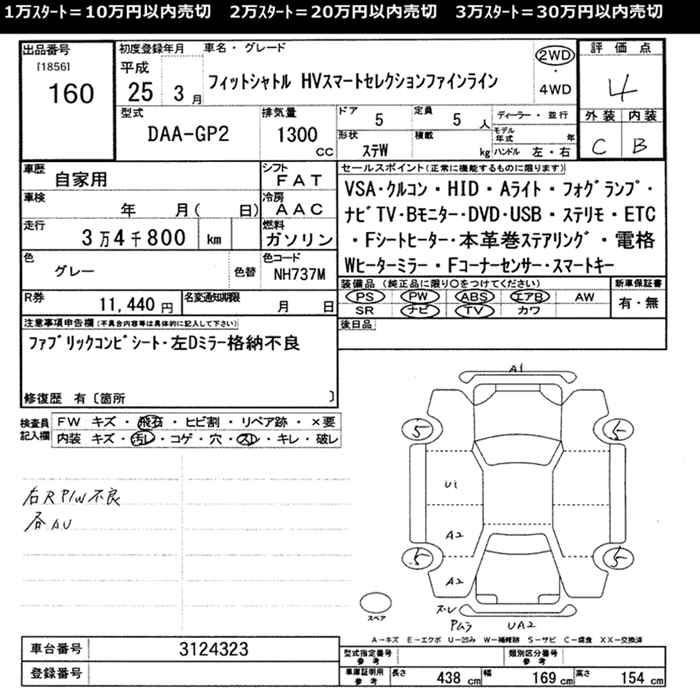 1万ｽﾀｰﾄ＝10万円以内売切　2万ｽﾀｰﾄ＝20万円以内売切　3万ｽﾀｰﾄ＝30万円以内売切
出品番号
[1856]
160
初度登録年月
平成
25 3月
車名・グレード
フィットシャトル HVスマートセレクションファインライン
2WD
・
4WD
評価点
4
外装 内装
C B
型式
DAA-GP2
排気量
1300
cc
ドア 5
定員 5人
形状 ステW
積載 kg
ディーラー・並行
モデル年式 年
ハンドル 左・右
車歴
自家用
シフト
FAT
車検
年 月( 日)
冷房
AAC
走行
3万4千800 km
燃料
ガソリン
色
グレー
色替
色コード
NH737M
R券
11,440円
名変通知期限
月 日
セールスポイント(正常に機能するものに限ります)
VSA・クルコン・HID・Aライト・フォグランプ・
ナビTV・Bモニター・DVD・USB・ステリモ・ETC
・Fシートヒーター・本革巻ステアリング・電格
Wヒーターミラー・Fコーナーセンサー・スマートキー
装備品(純正品に限り○をつけてください)
PS PW ABS エアB AW
SR ナビ TV カワ
新車保証書
有・無
後日品
注意事項申告欄(不具合内容等は具体的に記入して下さい)
ファブリックコンビシート・左Dミラー格納不良
修復歴 有〔箇所 〕
検査員
記入欄
FW キズ・飛石・ヒビ割・リペア跡・×要
内装 キズ・汚レ・コゲ・穴・スレ・キレ・破レ
右R P/W不良
各AU
A1
5
5
U1
A2
5
5
A2
スレ
UA2
スペア
A－キズ E－エクボ U－凹み W－補修跡 S－サビ C－腐食 XX－交換済
車台番号
3124323
登録番号
型式指定番号
参考
類別区分番号
参考
車庫証明用
参考
長さ 438 cm
幅 169 cm
高さ 154 cm